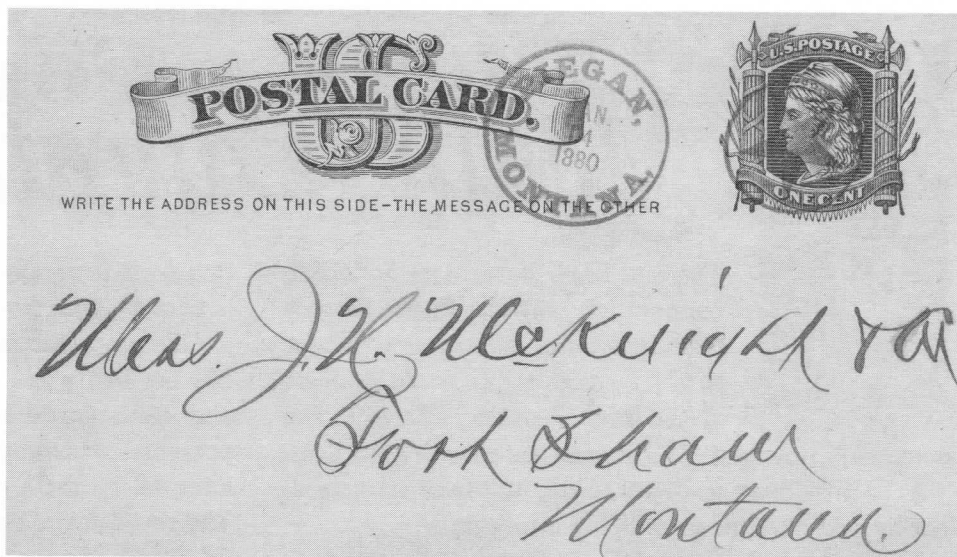 US
POSTAL CARD.
EGAN,
AN.
4
1880
MONTANA.
U.S. POSTAGE
ONE CENT
WRITE THE ADDRESS ON THIS SIDE-THE MESSAGE ON THE OTHER
Mess. J.H. McKnight &
Fort Shaw
Montana.